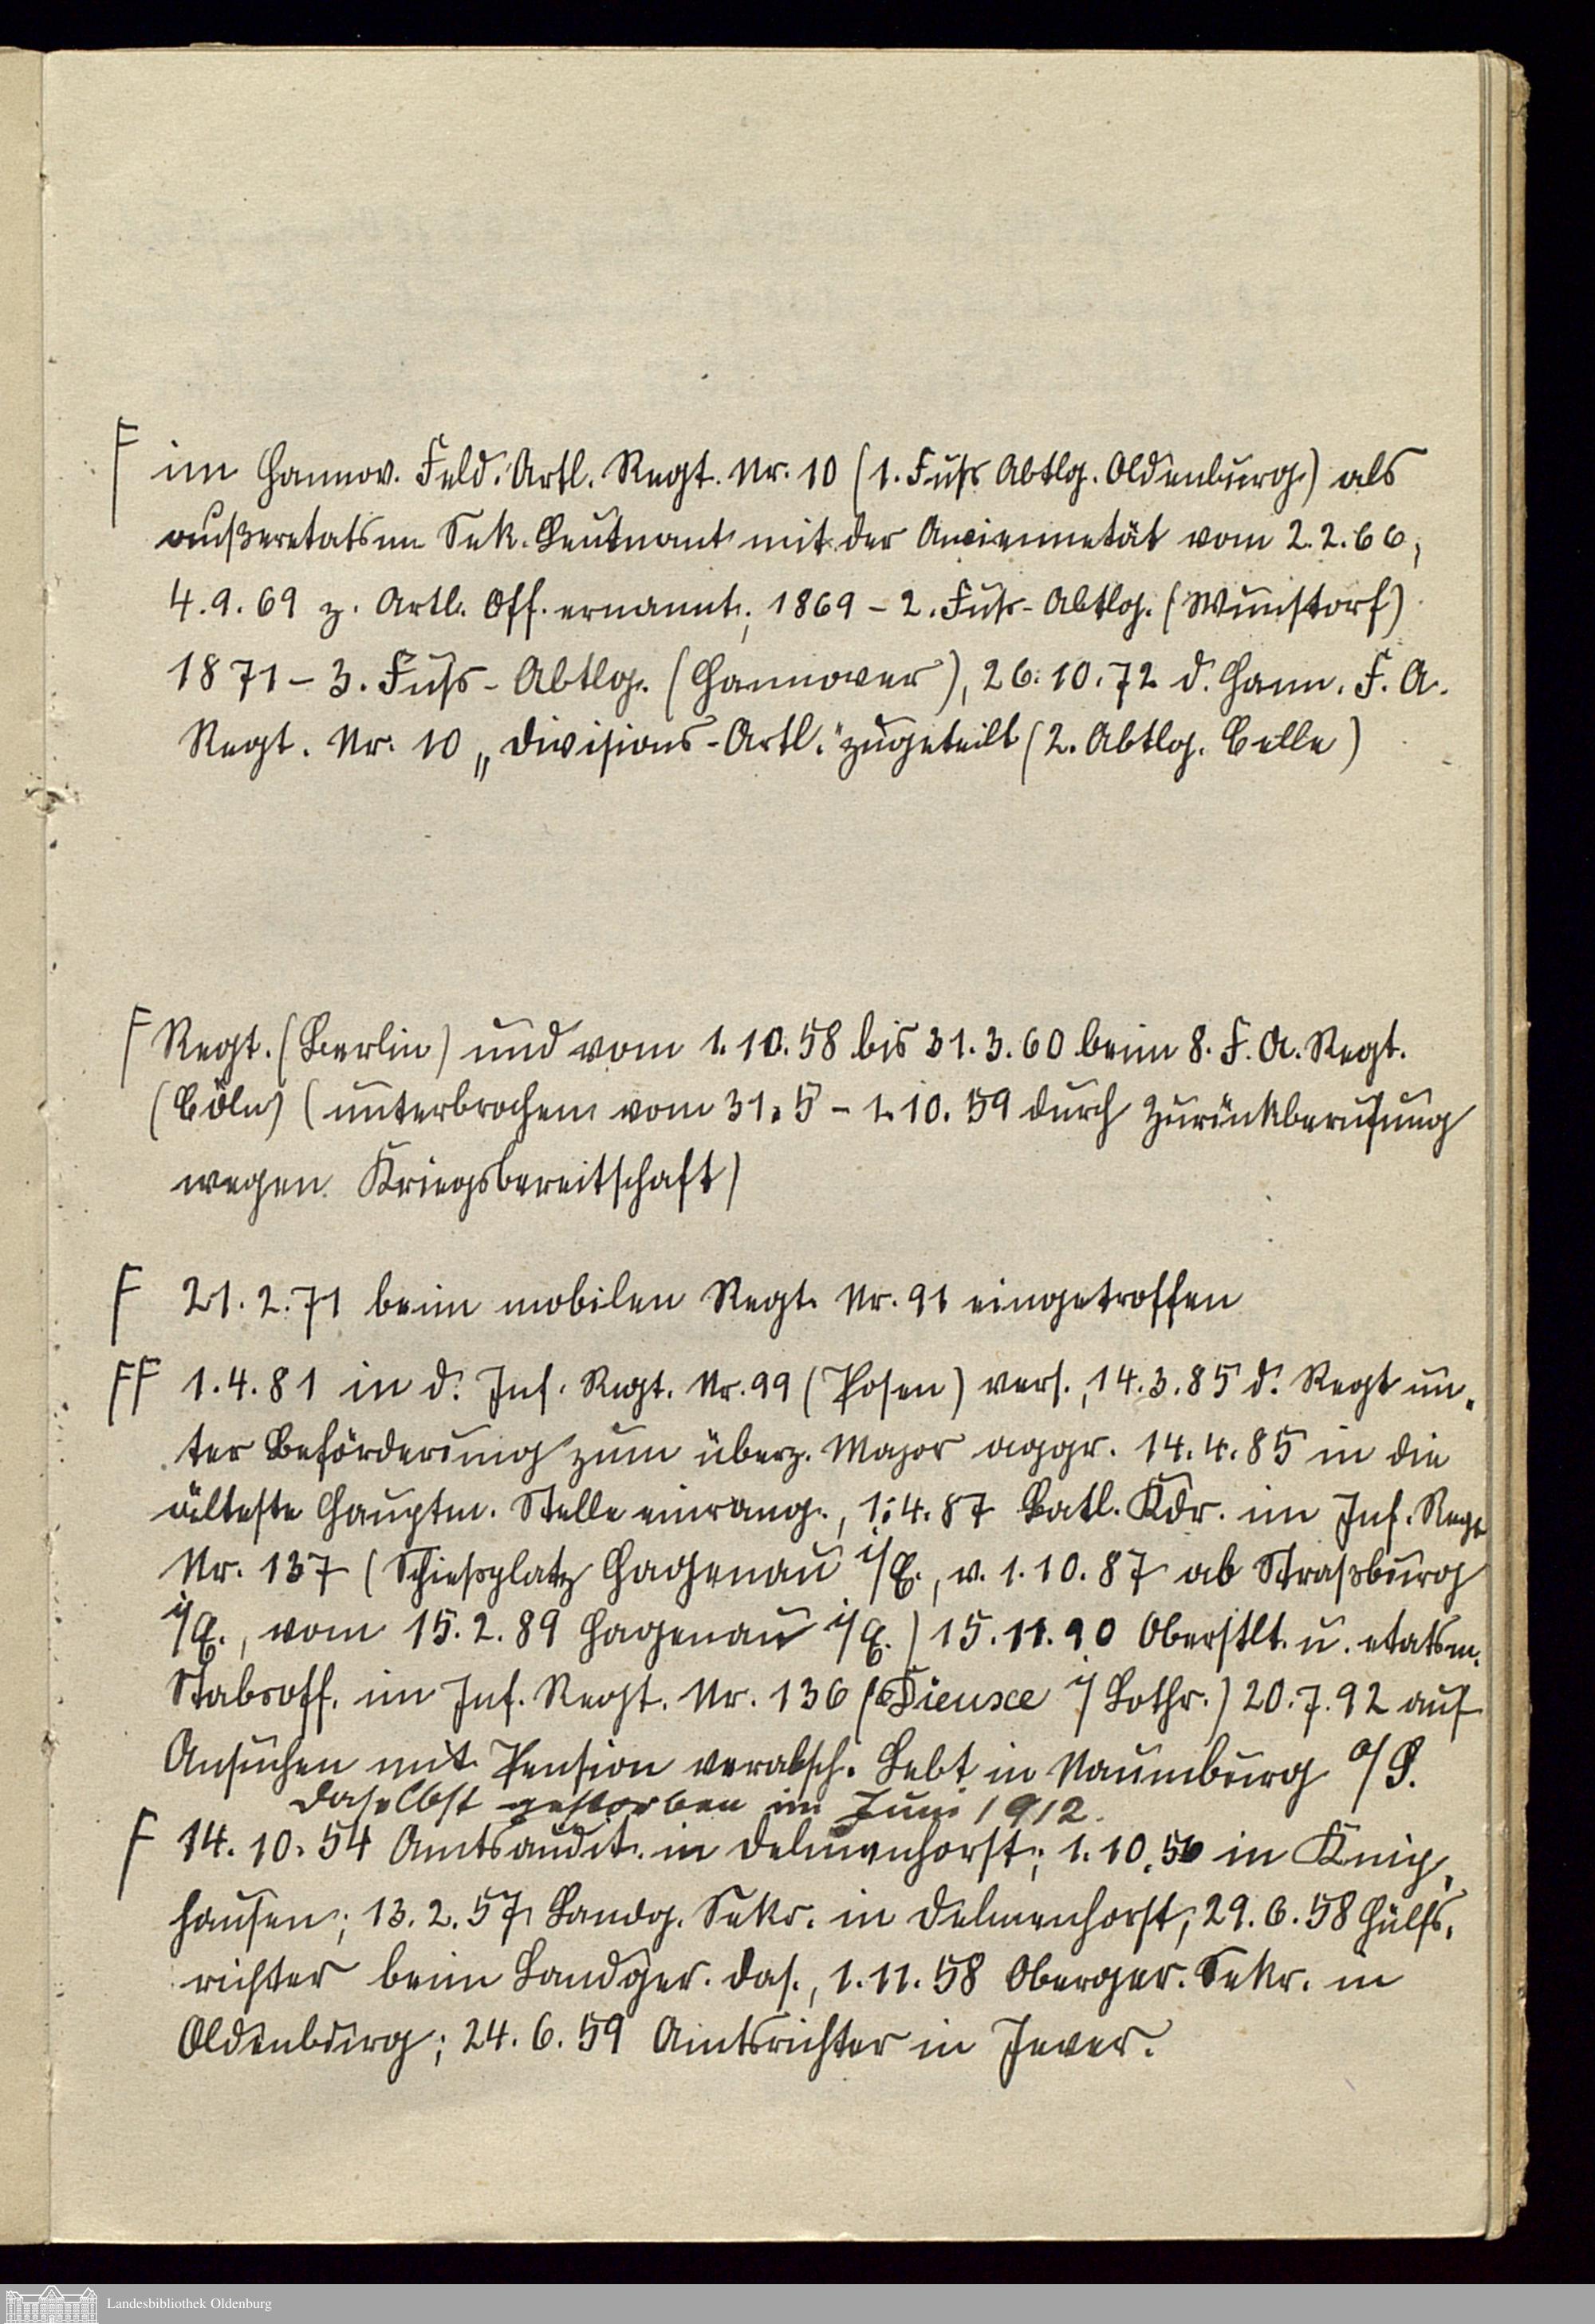 F im Hannov. Feld. Artl. Regt. Nr. 10 (1. Fuß Abtlg. Oldenburg) als
außeretatsm Sek. Leutnant mit der Anciennetät vom 2.2.66,
4.9.69 z. Artl. Off. ernannt; 1869 – 2. Fuß-Abtlg. (Wunstorf)
1871 – 3. Fuß-Abtlg. (Hannover), 26.10.72 d. Hann. F. A.
Regt. Nr. 10 „Divisions-Artl." zugeteilt (2. Abtlg. Celle)
F Regt. (Berlin) und vom 1.10.58 bis 31.3.60 beim 8. F. A. Regt.
(Cöln) (unterbrochen vom 31.5 – 1.10.59 durch Zurückberufung
wegen Kriegsbereitschaft)
F 21.2.71 beim mobilen Regt. Nr. 91 eingetroffen
FF 1.4.81 in d. Inf. Regt. Nr. 99 (Posen) vers., 14.3.85 d. Regt un-
ter Beförderung zum überz. Major aggr. 14.4.85 in die
älteste Hauptm. Stelle einrang., 1.4.87 Batl. Kdr. im Inf. Regt
Nr. 137 (Schießplatz Hagenau i/E., v. 1.10.87 ab Straßburg
i/E., vom 15.2.89 Hagenau i/E.) 15.11.90 Oberstlt. u. etatsm.
Stabsoff. im Inf. Regt. Nr. 136 (Dieuze i/Lothr.) 20.7.92 auf
Ansuchen mit Pension verabsch. Lebt in Naumburg a/S.
daselbst gestorben im Juni 1912.
F 14.10.54 Amtsaudit. in Delmenhorst; 1.10.56 in Knip-
hausen; 13.2.57 Landg. Sekr. in Delmenhorst; 29.6.58 Hülfs-
richter beim Landger. das., 1.11.58 Oberger. Sekr. in
Oldenburg; 24.6.59 Amtsrichter in Jever.
Landesbibliothek Oldenburg